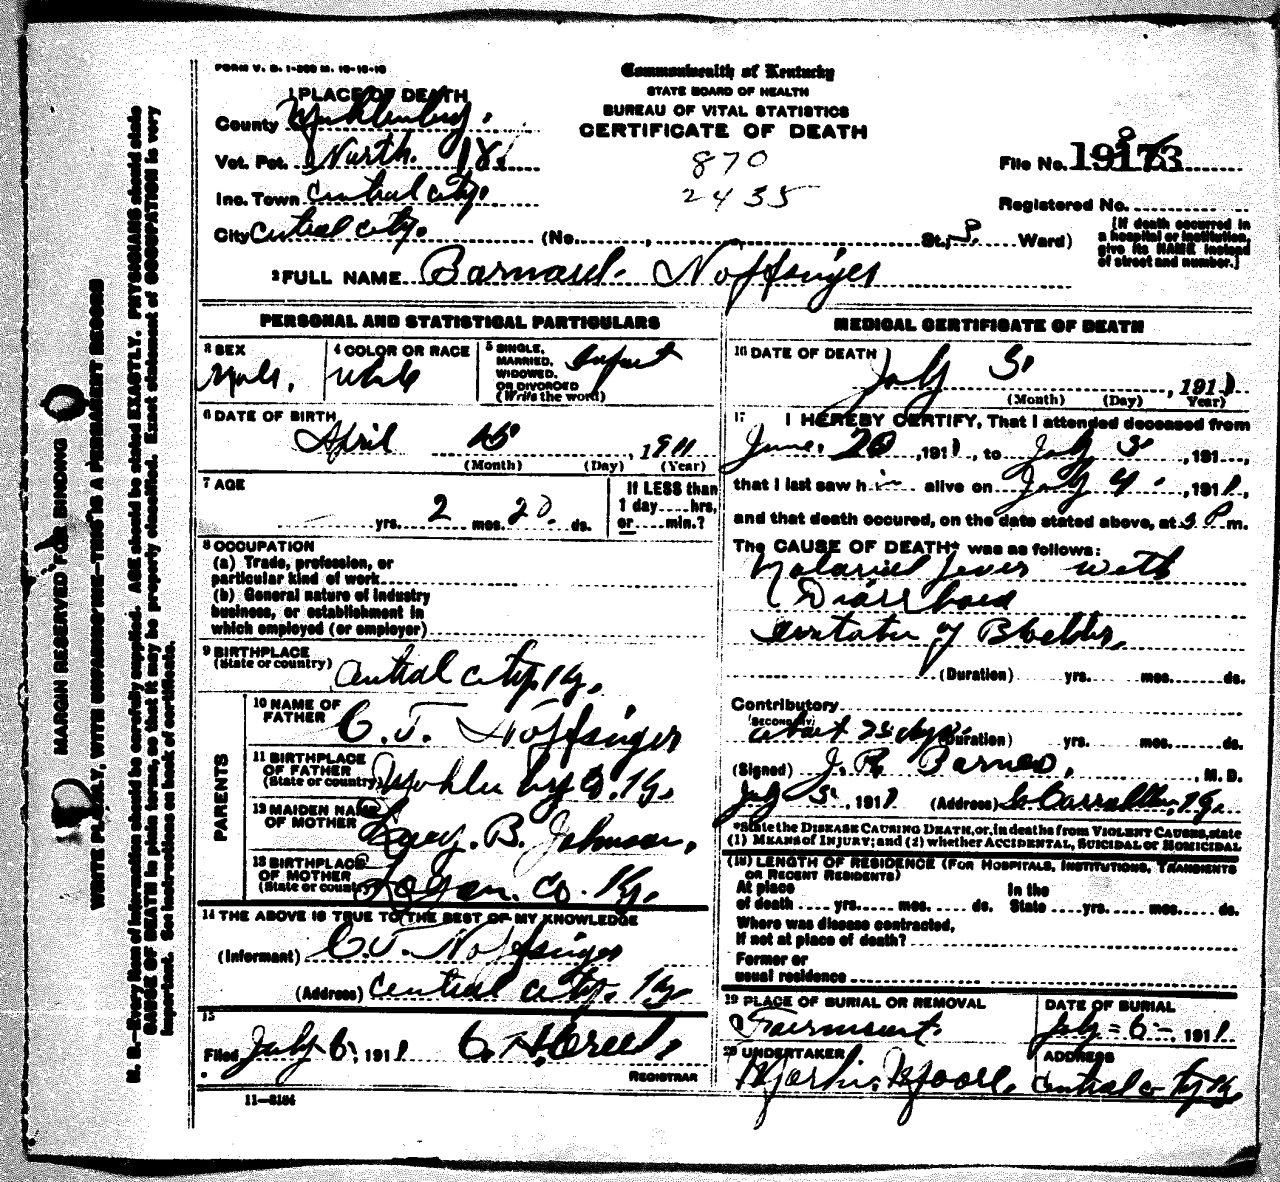 FORM V. S. 1-500 M. 10-10-10
Commonwealth of Kentucky
STATE BOARD OF HEALTH
BUREAU OF VITAL STATISTICS
CERTIFICATE OF DEATH
870
2435
1 PLACE OF DEATH
County Muhlenberg.
Vot. Pct. North. 18.
Inc. Town Central City.
City Central City. (No. , St.; 3. Ward)
File No. 19173
Registered No.
[If death occurred in
a hospital or institution,
give its NAME instead
of street and number.]
2 FULL NAME Barnasel. Noffsinger
PERSONAL AND STATISTICAL PARTICULARS
3 SEX
Male.
4 COLOR OR RACE
White
5 SINGLE,
MARRIED,
WIDOWED,
OR DIVORCED
(Write the word)
Infant
6 DATE OF BIRTH
April 15 , 1911
(Month) (Day) (Year)
7 AGE
yrs. 2 mos. 20. ds.
If LESS than
1 day....hrs.
or....min.?
8 OCCUPATION
(a) Trade, profession, or
particular kind of work
(b) General nature of industry
business, or establishment in
which employed (or employer)
9 BIRTHPLACE
(State or country) Central City, Ky.
PARENTS
10 NAME OF
FATHER C. T. Noffsinger
11 BIRTHPLACE
OF FATHER
(State or country) Muhlenberg Co. Ky.
12 MAIDEN NAME
OF MOTHER Lucy. B. Johnson,
13 BIRTHPLACE
OF MOTHER
(State or country) Logan. Co. Ky.
14 THE ABOVE IS TRUE TO THE BEST OF MY KNOWLEDGE
(Informant) C. T. Noffsinger
(Address) Central City. Ky
15
Filed July 6, 1911 C. H. Creel,
REGISTRAR
11—8184
MEDICAL CERTIFICATE OF DEATH
16 DATE OF DEATH
July 5. , 1911
(Month) (Day) Year)
17 I HEREBY CERTIFY, That I attended deceased from
June. 20, 1911, to July 5, 191...,
that I last saw h im alive on July 4., 1911,
and that death occured, on the date stated above, at 3 P m.
The CAUSE OF DEATH* was as follows:
Malarial fever with
Diarrhoea
Irritation of Bladder,
(Duration) yrs. mos. ds.
Contributory
(SECONDARY)
about 25 days. (Duration) yrs. mos. ds.
(Signed) J. R. Barnes, , M. D.
July 5, 1911 (Address) So Carrollton, Ky.
*State the DISEASE CAUSING DEATH, or, in deaths from VIOLENT CAUSES, state
(1) MEANS OF INJURY; and (2) whether ACCIDENTAL, SUICIDAL OR HOMICIDAL
(18) LENGTH OF RESIDENCE (FOR HOSPITALS, INSTITUTIONS, TRANSIENTS
OR RECENT RESIDENTS)
At place In the
of death .... yrs..... mos. .... ds. State ....yrs..... mos. .... ds.
Where was disease contracted,
If not at place of death?
Former or
usual residence
19 PLACE OF BURIAL OR REMOVAL
Fairmount.
DATE OF BURIAL
July 6, 1911
20 UNDERTAKER
Martin. Moore.
ADDRESS
Central City Ky
MARGIN RESERVED FOR BINDING
WRITE PLAINLY, WITH UNFADING INK—THIS IS A PERMANENT RECORD
N. B.—Every item of information should be carefully supplied. AGE should be stated EXACTLY. PHYSICIANS should state
CAUSE OF DEATH in plain terms, so that it may be properly classified. Exact statement of OCCUPATION is very
important. See instructions on back of certificate.